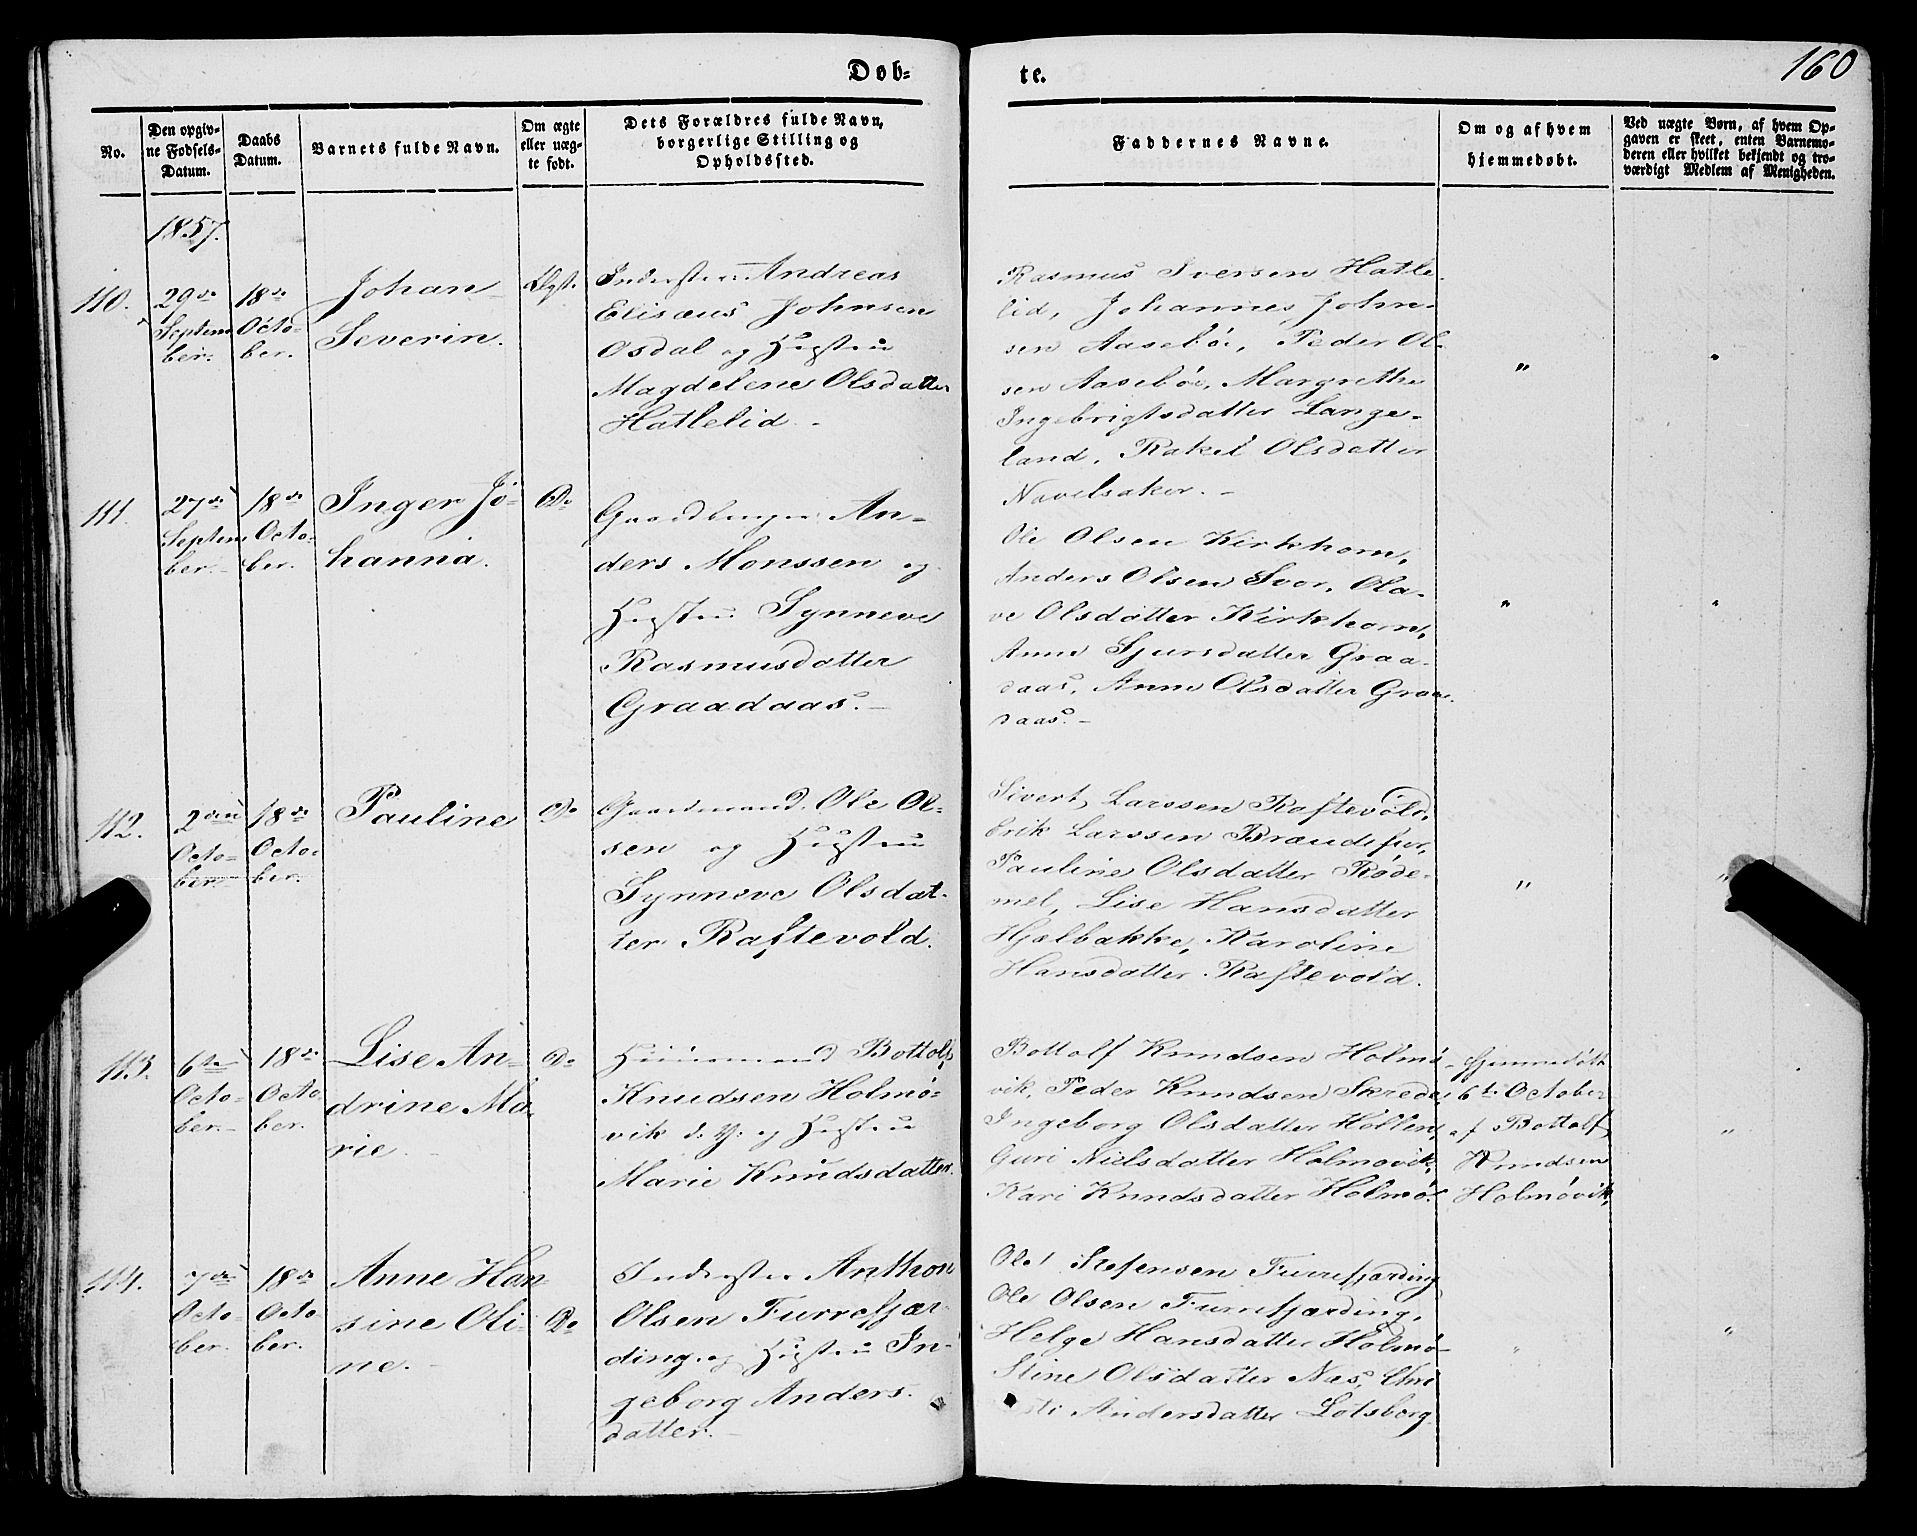 Døb=
te.
160
No.
Den opgiv=
ne Fødsels=
Datum.
Daabs
Datum.
Barnets fulde Navn.
Om ægte
eller uæg=
te født.
Dets Forældres fulde Navn,
borgerlige Stilling og
Opholdssted.
Faddernes Navne.
Om og af hvem
hjemmedøbt.
Ved uægte Børn, af hvem Op=
gaven er skeet, enten Barnemo=
deren eller hvilket bekjendt og tro=
værdigt Medlem af Menigheden.
1857.
110.
29de
Septem
ber.
18de
Octo=
ber.
Johan
Severin.
Ægt.
Inderste Andreas
Elisæus Johnsen
Osdal og Hustru
Magdelene Olsdatter
Hatlelid.
Rasmus Iversen Hatle-
lid, Johannes John-
sen Aasebø, Peder Ol-
sen Aasebø, Margrethe
Ingebrigtsdatter Lange-
land, Rakel Olsdatter
Navelsaker.
"
"
111.
27de
Septem
ber.
18de
Octo=
ber.
Inger Jo-
hanna.
Do
Gaardbruger An-
ders Monssen og
Hustru Synneve
Rasmusdatter
Graadaas.
Ole Olsen Kirkhorn,
Anders Olsen Svor, Ola-
ve Olsdatter Kirkhorn,
Anne Sjursdatter Graa-
daas, Anne Olsdatter Graa-
daas.
"
"
112.
2den
Octo=
ber.
18de
Octo=
ber.
Pauline
Do
Gaardmand Ole Ol-
sen og Hustru
Synneve Olsdat-
ter Raftevold.
Sivert Larssen Raftevold,
Erik Larssen
Pauline Olsdatter Røde-
mel, Lise Hansdatter
Hjelbakke, Karoline
Hansdatter Raftevold.
"
"
113.
6te
Octo=
ber.
18de
Octo
ber.
Lise An-
drine Ma-
rie.
Do
Huusmand Bottolf
Knudsen Holmø-
vik d. y. og Hustru
Marie Knudsdatter.
Bottolf Knudsen Holmø-
vik, Peder Knudsen Skrede,
Ingeborg Olsdatter Hollen,
Guri Nielsdatter Holmøvik,
Kari Knudsdatter Holmø.
Hjemmedøbt
6te October
af Bottolf
Knudsen
Holmøvik.
"
114.
7de
Octo=
ber.
18de
Octo
ber.
Anne Han
sine Oli-
ne.
Do
Inderste Anthon
Olsen Furrefjær-
ding og Hustru In-
geborg Anders-
datter.
Ole Stefensen Furrefjærding
Ole Olsen Furrefjærding,
Helge Hansdatter Holmø-
Stine Olsdatter Nes, Chri
Andersdatter Lotsberg
"
"